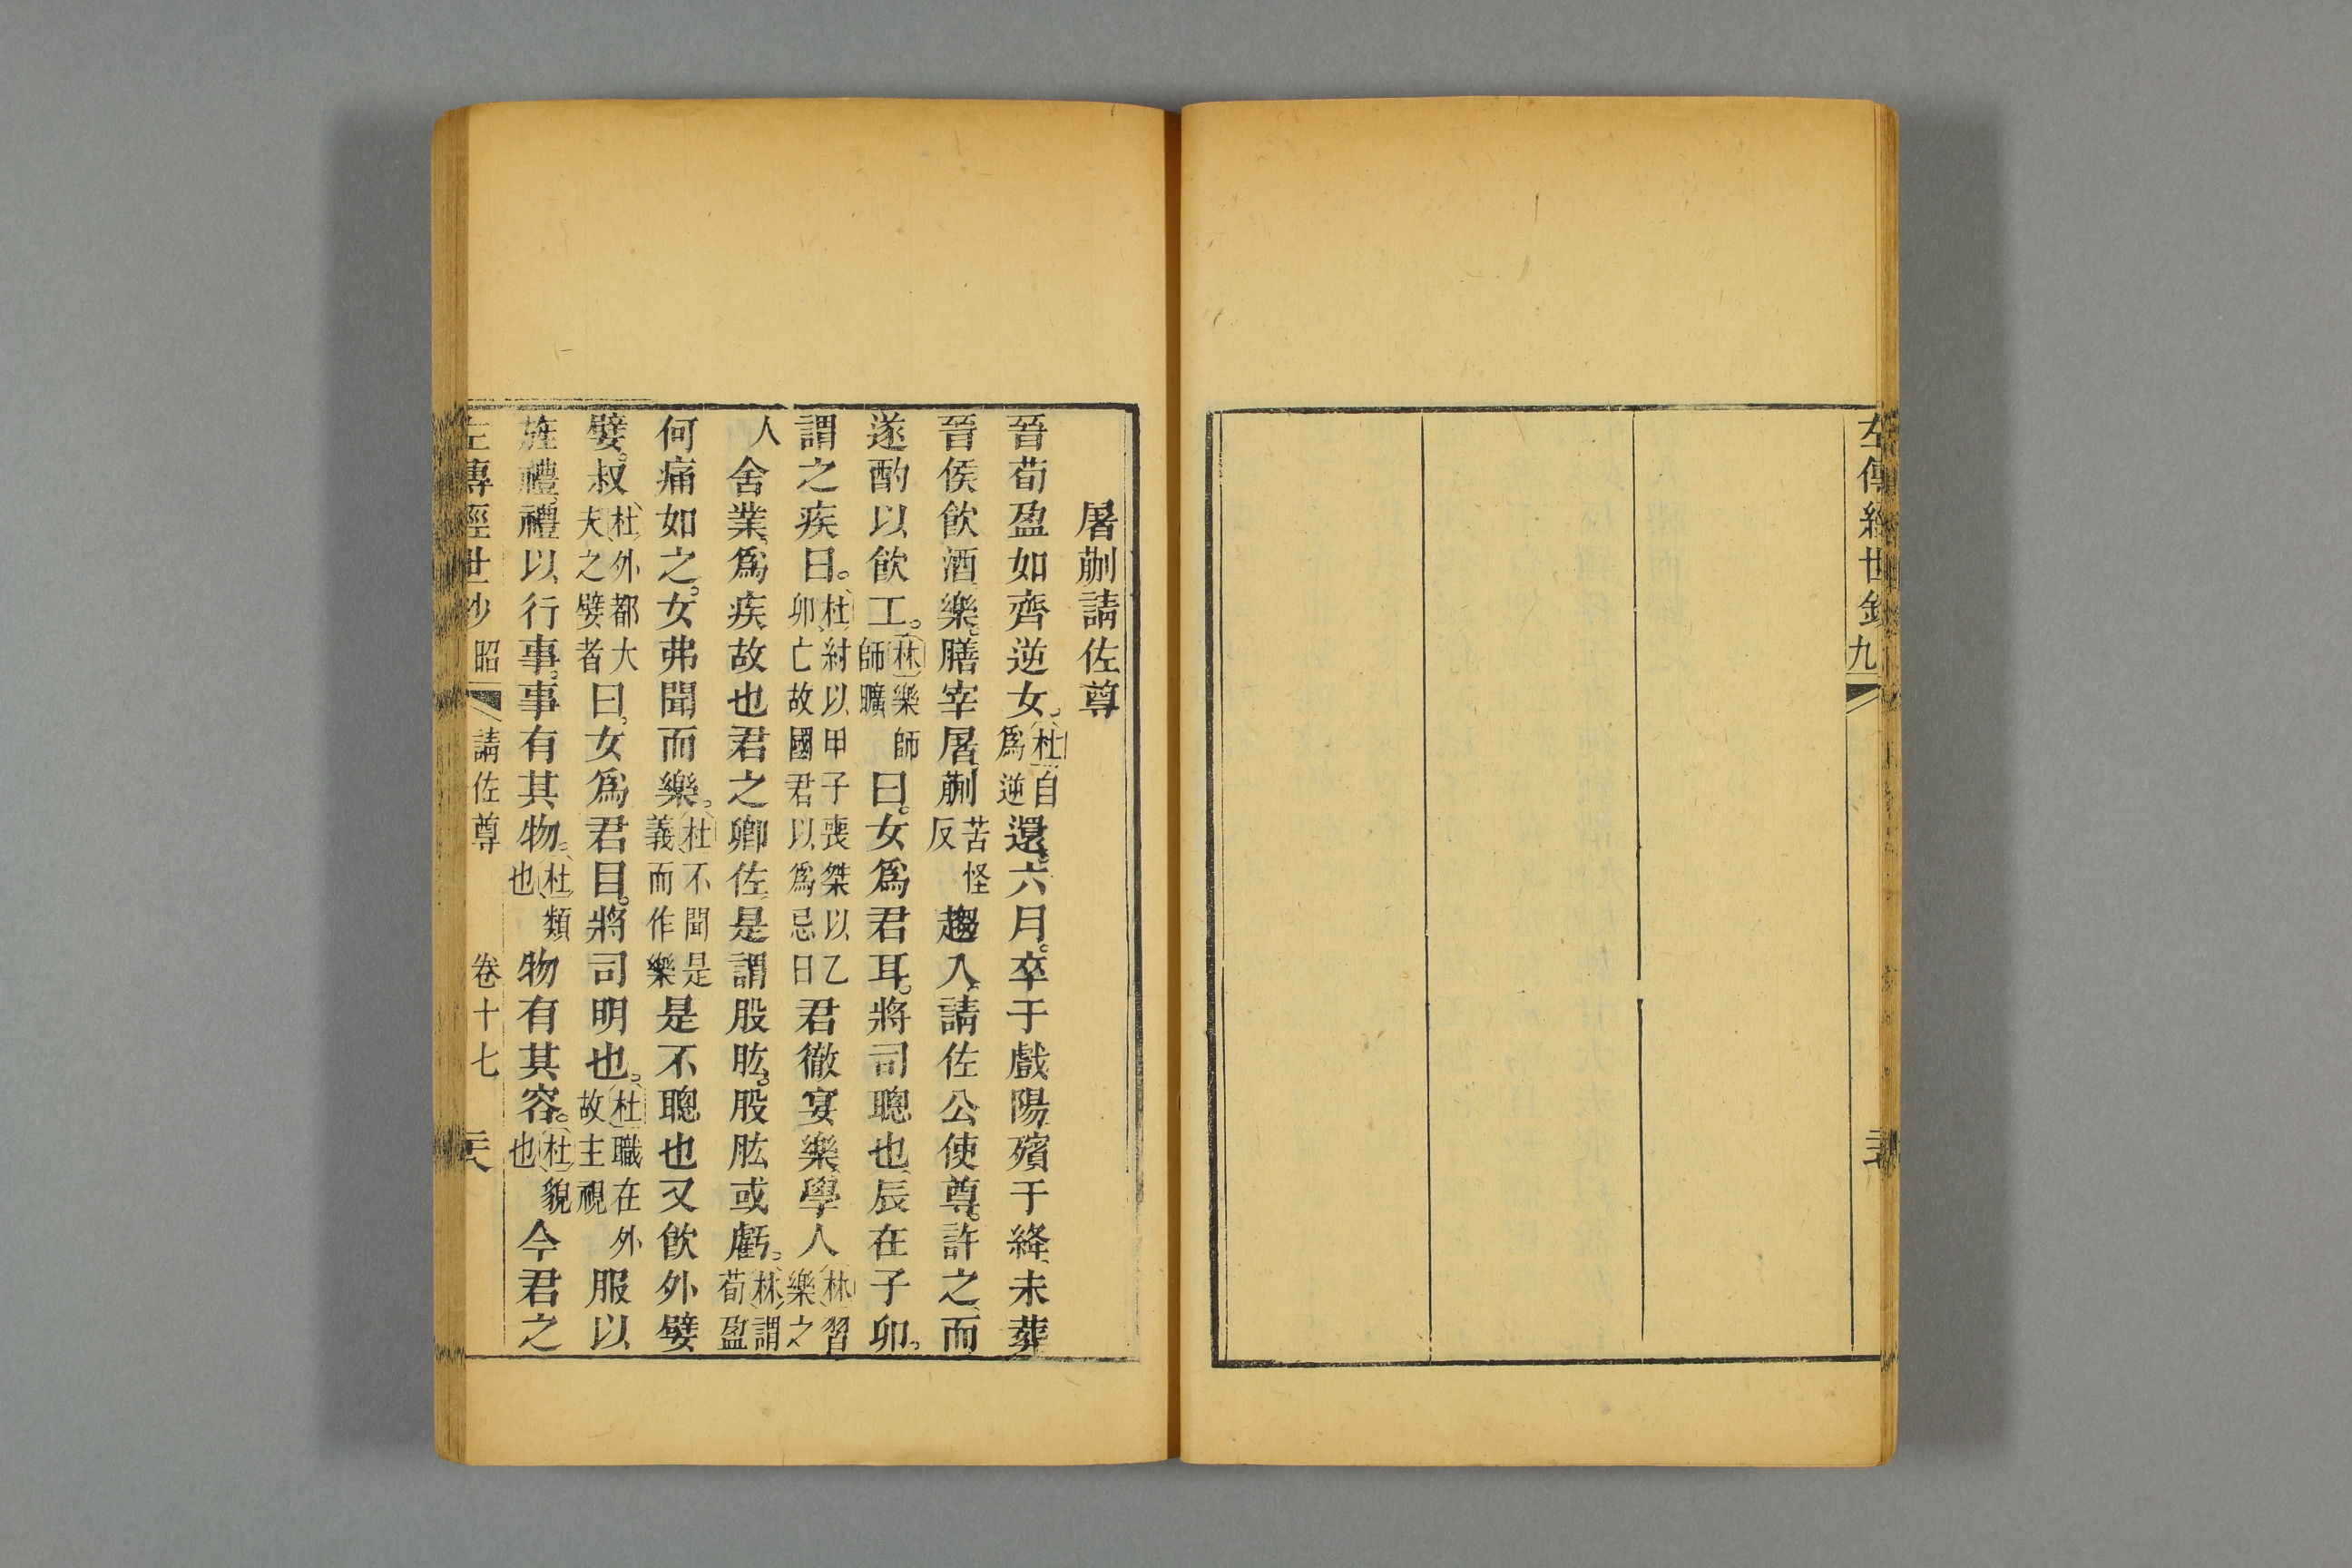 左傳經世鈔
九
屠蒯請佐尊
晉荀盈如齊逆女。杜自爲逆還。六月。卒于戲陽。殯于絳。未葬
晉侯飲酒樂。膳宰屠蒯苦怪反趨入。請佐公使尊。許之。而
遂酌以飲工。林樂師師曠曰。女爲君耳。將司聰也。辰在子卯。
謂之疾日。杜紂以甲子喪桀以乙卯亡故國君以爲忌日君徹宴樂。學人林習樂之
人舍業。爲疾故也君之卿佐。是謂股肱。股肱或虧。林謂荀盈
何痛如之。女弗聞而樂。杜不聞是義而作樂是不聰也又飲外嬖
嬖。叔杜外都大夫之嬖者曰。女爲君目。將司明也。杜職在外故主視服以
旌禮。禮以行事。事有其物。杜類也物有其容。杜貌也今君之
左傳經世鈔 昭 請佐尊 卷十七